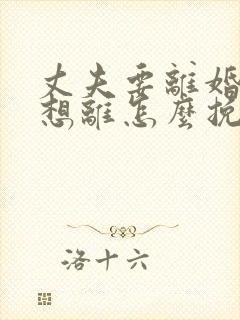 丈夫要離婚
想離怎麼挽
洛十六